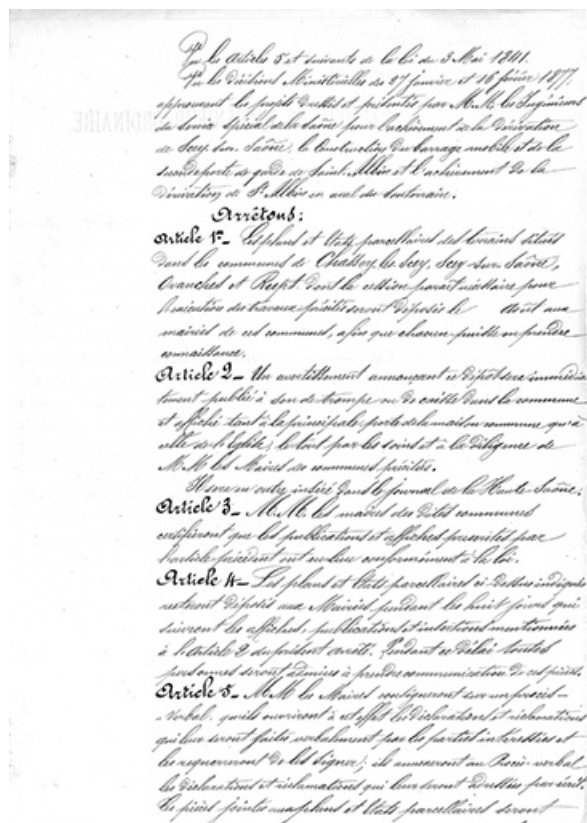 Vu les Articles 5 et suivants de la loi du 3 Mai 1841.
Vu les décisions Ministérielles des 27 janvier et 16 février 1877,
approuvant les projets dressés et présentés par M.M. les Ingénieurs
du service spécial de la Saône pour l'achèvement de la dérivation
de Scey-sur-Saône, la Construction du barrage mobile et de la
seconde porte de garde de Saint-Albin et l'achèvement de la
dérivation de St Albin en aval du Souterrain.
Arrêtons:
Article 1er_ Les plans et Etats parcellaires des terrains situés
dans les communes de Chassey-les-Scey, Scey-sur-Saône,
Ovanches et Rupt, dont la cession paraît nécessaire pour
l'exécution des travaux précités seront déposés le Août aux
mairies de ces communes, afin que chacun puisse en prendre
connaissance.
Article 2_ Un avertissement annonçant ce dépôt sera immédia-
tement publié à son de trompe ou de caisse dans la commune
et affiché tant à la principale porte de la maison commune qu'à
celle de l'Eglise, le tout par les soins et à la diligence de
M.M. les Maires des communes précitées.
Il sera en outre inséré dans le journal de la Haute-Saône.
Article 3_ M.M. les maires des dites communes
certifieront que les publications et affiches prescrites par
l'article précédent ont eu lieu conformément à la loi.
Article 4_ Les plans et Etats parcellaires ci-dessus indiqués
resteront déposés aux Mairies, pendant les huit jours qui
suivront les affiches, publications et insertions mentionnées
à l'article 2 du présent arrêté. Pendant ce délai toutes
personnes seront admises à prendre communication de ces pièces.
Article 5_ M.M. les Maires consigneront sur un procès-
-verbal, qu'ils ouvriront à cet effet les déclarations et réclamations
qui leur seront faites verbalement par les parties intéressées et
les requerront de les signer; ils annexeront au Procès-verbal
les déclarations et réclamations qui leur seront adressées par écrit.
Ces pièces jointes aux plans et Etats parcellaires seront